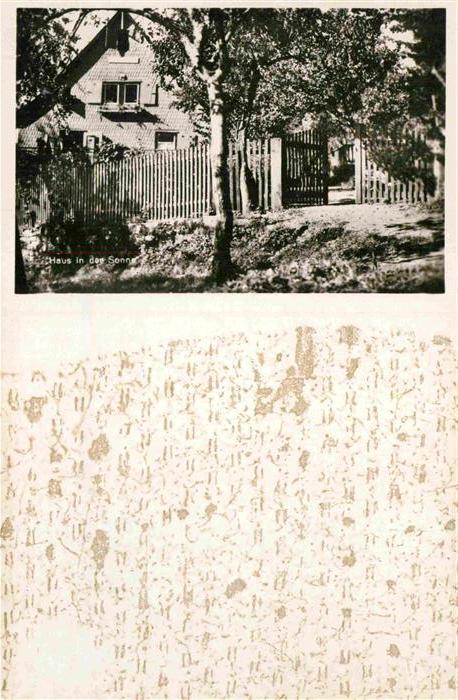 "Haus in der Sonne"